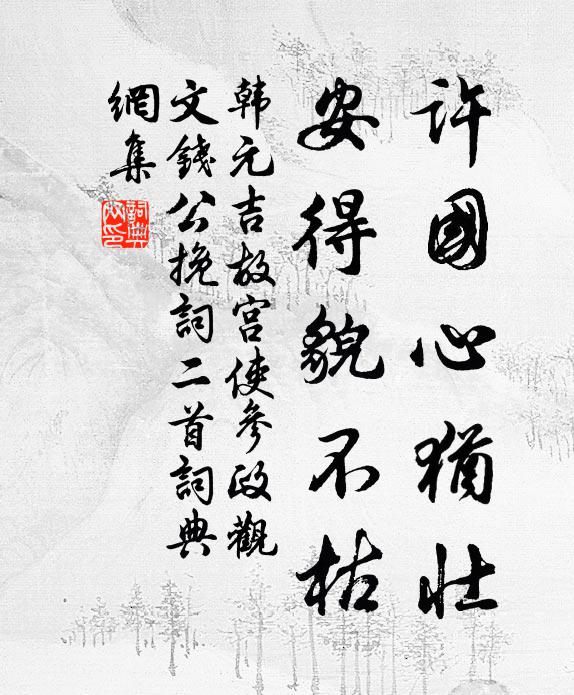 許國心猶壯
安得貌不枯
韩元吉故宫使參政觀
文錢公挽詞二首詞典
網集